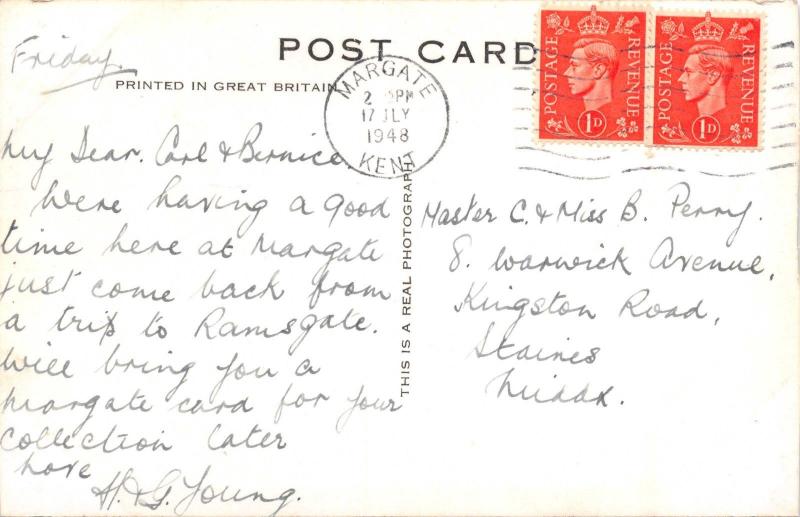 Friday.
POST CARD
PRINTED IN GREAT BRITAIN
MARGATE
PM
17 JLY
1948
KENT
POSTAGE REVENUE
1D
POSTAGE REVENUE
1D
My Dear. Carl & Bernice.
Were having a good
time here at Margate
just come back from
a trip to Ramsgate.
Will bring you a
Margate card for your
collection later
Love
H. & G. Young.
THIS IS A REAL PHOTOGRAPH
Master C. & Miss B. Perry.
8. Warwick Avenue,
Kingston Road,
Staines
Middx.